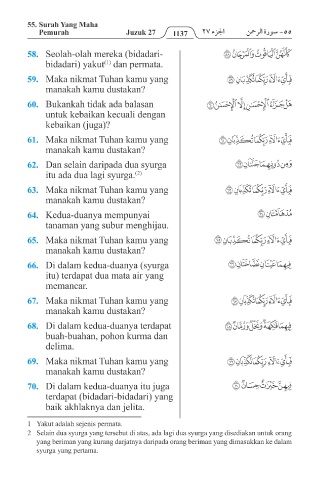 55. Surah Yang Maha
Pemurah Juzuk 27 1137 الجزء ٢٧ ٥٥ - سورة الرحمن
58. Seolah-olah mereka (bidadari- كَأَنَّهُنَّ ٱلْيَاقُوتُ وَٱلْمَرْجَانُ ٥٨
bidadari) yakut(1) dan permata.
59. Maka nikmat Tuhan kamu yang فَبِأَيِّ ءَالَآءِ رَبِّكُمَا تُكَذِّبَانِ ٥٩
manakah kamu dustakan?
60. Bukankah tidak ada balasan هَلْ جَزَآءُ ٱلْإِحْسَٰنِ إِلَّا ٱلْإِحْسَٰنُ ٦٠
untuk kebaikan kecuali dengan
kebaikan (juga)?
61. Maka nikmat Tuhan kamu yang فَبِأَيِّ ءَالَآءِ رَبِّكُمَا تُكَذِّبَانِ ٦١
manakah kamu dustakan?
62. Dan selain daripada dua syurga وَمِن دُونِهِمَا جَنَّتَانِ ٦٢
itu ada dua lagi syurga.(2)
63. Maka nikmat Tuhan kamu yang فَبِأَيِّ ءَالَآءِ رَبِّكُمَا تُكَذِّبَانِ ٦٣
manakah kamu dustakan?
64. Kedua-duanya mempunyai مُدْهَآمَّتَانِ ٦٤
tanaman yang subur menghijau.
65. Maka nikmat Tuhan kamu yang فَبِأَيِّ ءَالَآءِ رَبِّكُمَا تُكَذِّبَانِ ٦٥
manakah kamu dustakan?
66. Di dalam kedua-duanya (syurga فِيهِمَا عَيْنَانِ نَضَّاخَتَانِ ٦٦
itu) terdapat dua mata air yang
memancar.
67. Maka nikmat Tuhan kamu yang فَبِأَيِّ ءَالَآءِ رَبِّكُمَا تُكَذِّبَانِ ٦٧
manakah kamu dustakan?
68. Di dalam kedua-duanya terdapat فِيهِمَا فَٰكِهَةٌ وَنَخْلٌ وَرُمَّانٌ ٦٨
buah-buahan, pohon kurma dan
delima.
69. Maka nikmat Tuhan kamu yang فَبِأَيِّ ءَالَآءِ رَبِّكُمَا تُكَذِّبَانِ ٦٩
manakah kamu dustakan?
70. Di dalam kedua-duanya itu juga فِيهِنَّ خَيْرَٰتٌ حِسَانٌ ٧٠
terdapat (bidadari-bidadari) yang
baik akhlaknya dan jelita.
1 Yakut adalah sejenis permata.
2 Selain dua syurga yang tersebut di atas, ada lagi dua syurga yang disediakan untuk orang
yang beriman yang kurang darjatnya daripada orang beriman yang dimasukkan ke dalam
syurga yang pertama.